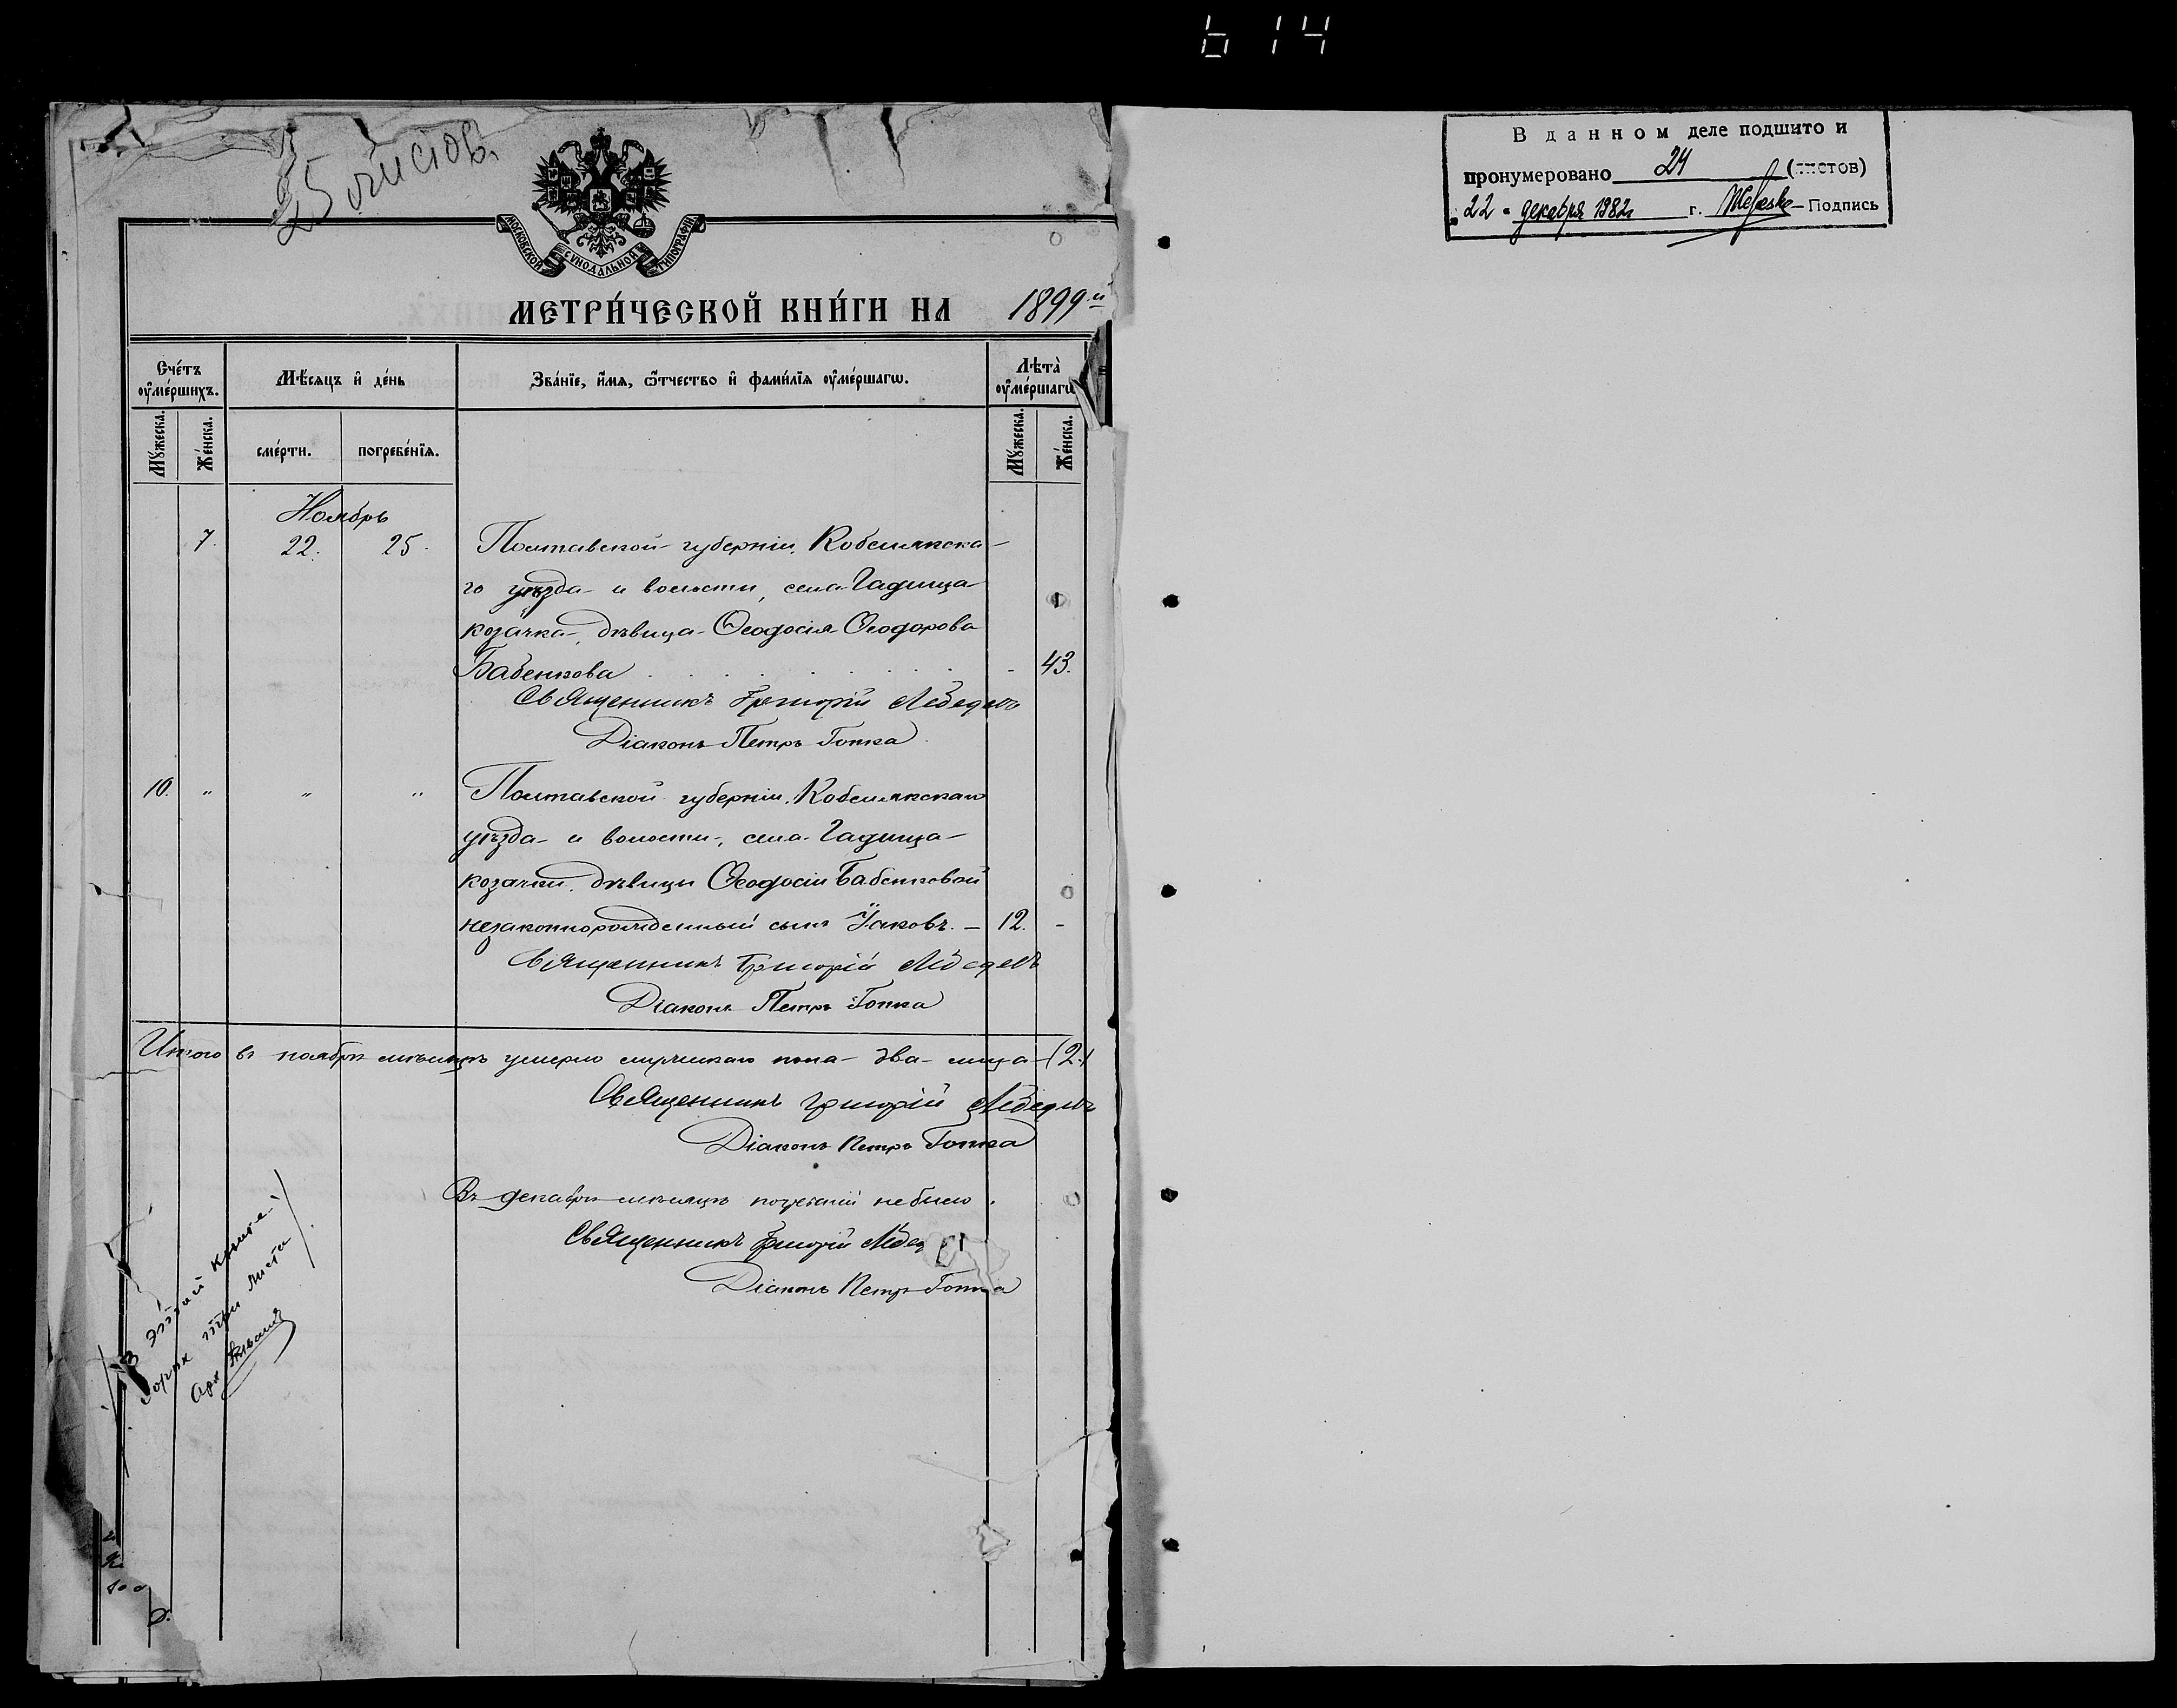 614
25 листов.
МОСКОВСКОЙ СѴНОДАЛЬНОЙ ТИПОГРАФІИ
МЕТРИ́ЧЕСКОЙ КНИ́ГИ НА 1899 й
Сче́тъ оу҆ме́ршихъ.
Мѣ́сяцъ и҆ де́нь
Зва́нїе, и҆́мя, ѻ҆́тчество и҆ фами́лїя оу҆ме́ршагѡ.
Лѣта̀ оу҆ме́ршагѡ
Мꙋ́жеска.
Же́нска.
сме́рти.
погребе́нїя.
Мꙋ́жеска.
Же́нска.
Ноябрь
7. 22. 25. Полтавской губерніи, Кобелякска-
го уѣзда и волости, села Гадища
козачка, дѣвица Ѳеодосія Ѳеодорова
Бабенкова . . . . . . . - 43.
Священникъ Григорій Лебедевъ
Діаконъ Петръ Гопка
10. " " " Полтавской губерніи, Кобелякскаго
уѣзда и волости, села Гадища
козачки, дѣвицы Ѳеодосіи Бабенковой
незаконнорожденный сынъ Іаковъ. - 12. -
Священникъ Григорій Лебедевъ
Діаконъ Петръ Гопка
Итого въ ноябрѣ мѣсяцѣ умерло пола два лица (2.)
Священникъ Григорій Лебедевъ
Діаконъ Петръ Гопка
Въ декабрѣ мѣсяцѣ погребеній небыло.
Священникъ Григорій Лебед
Діаконъ Петръ Гопка
В этой книге
сорок три листа
Арх
В данном деле подшито и
пронумеровано 24 (листов)
"22" декабря 1982 г. Подпись